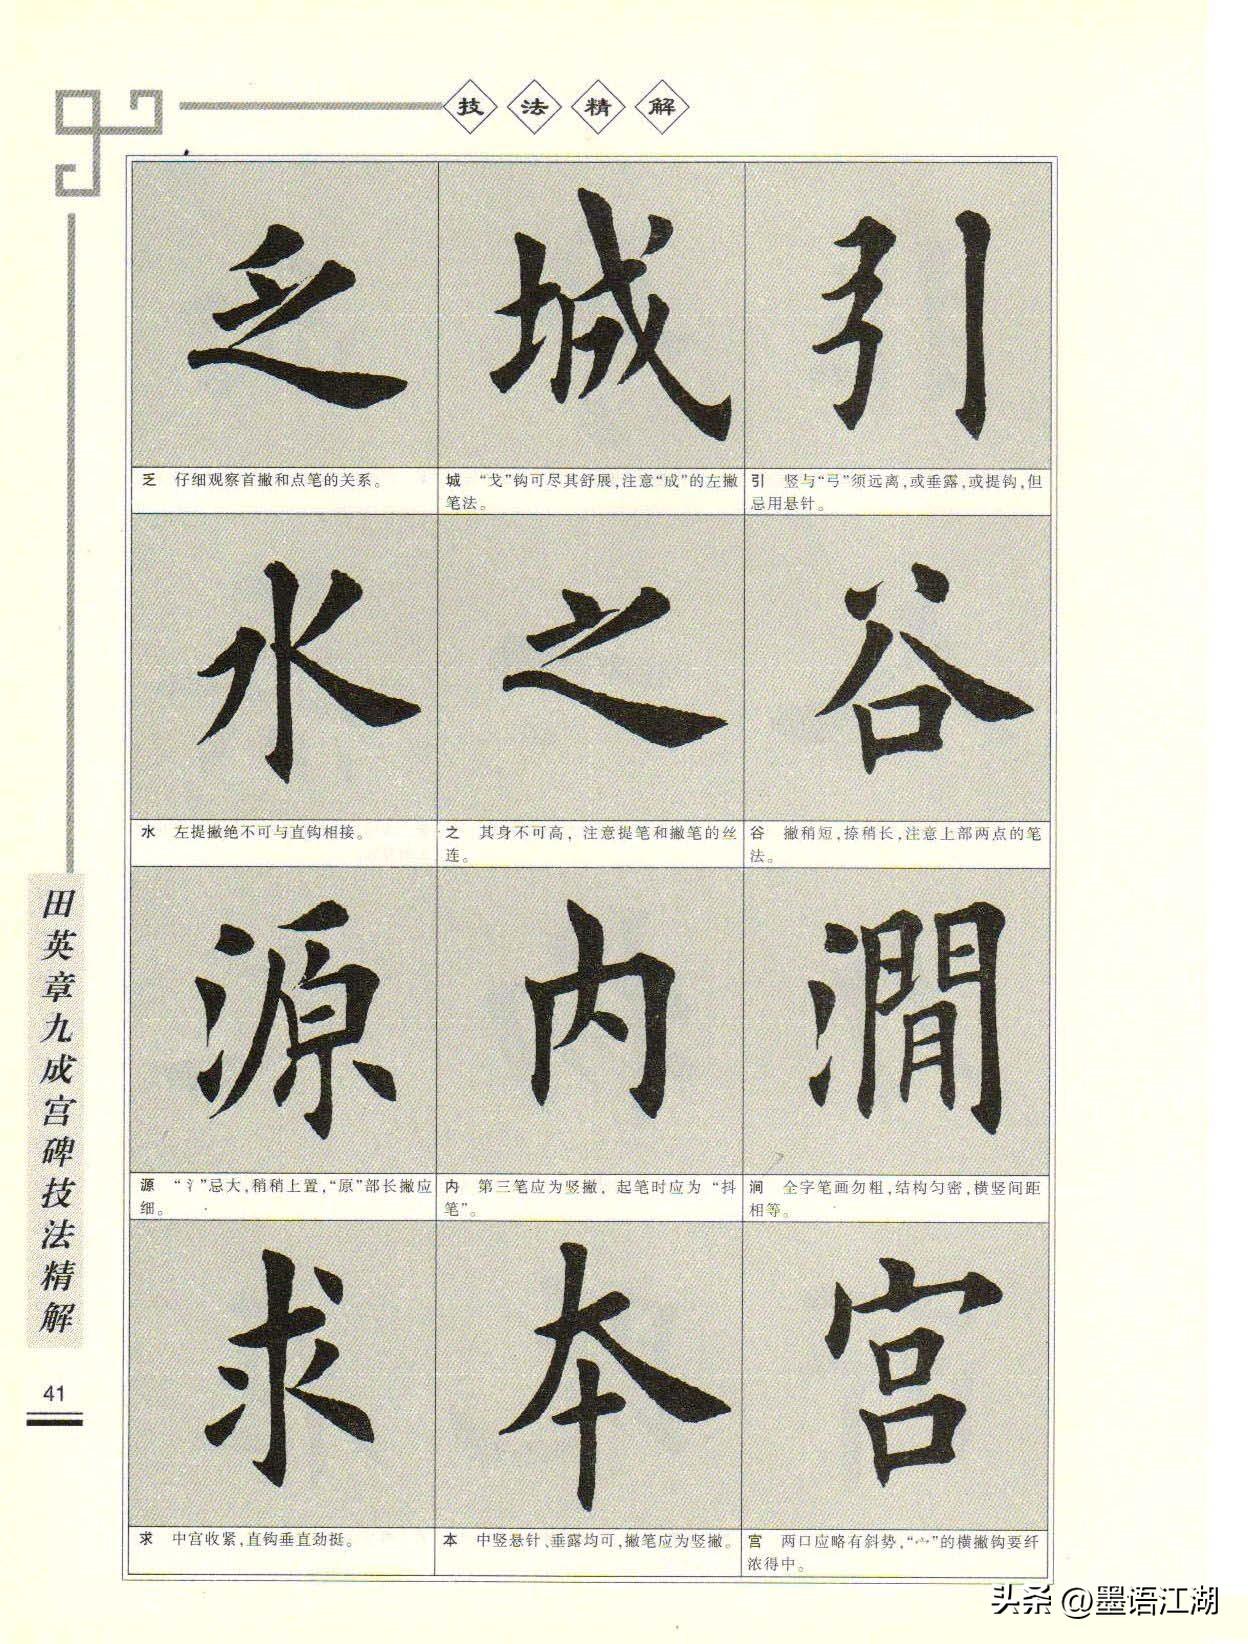 技法精解
乏 城 引
乏 仔细观察首撇和点笔的关系。
城 “戈”钩可尽其舒展,注意“成”的左撇
笔法。
引 竖与“弓”须远离,或垂露,或提钩,但
忌用悬针。
水 之 谷
水 左提撇绝不可与直钩相接。
之 其身不可高,注意提笔和撇笔的丝
连。
谷 撇稍短,捺稍长,注意上部两点的笔
法。
源 内 澗
源 “氵”忌大,稍稍上置,“原”部长撇应
细。
内 第三笔应为竖撇,起笔时应为“抖
笔”。
涧 全字笔画勿粗,结构匀密,横竖间距
相等。
求 本 宫
求 中宫收紧,直钩垂直劲挺。
本 中竖悬针、垂露均可,撇笔应为竖撇。
宫 两口应略有斜势,“宀”的横撇钩要纤
浓得中。
田英章九成宫碑技法精解
41
头条 @墨语江湖